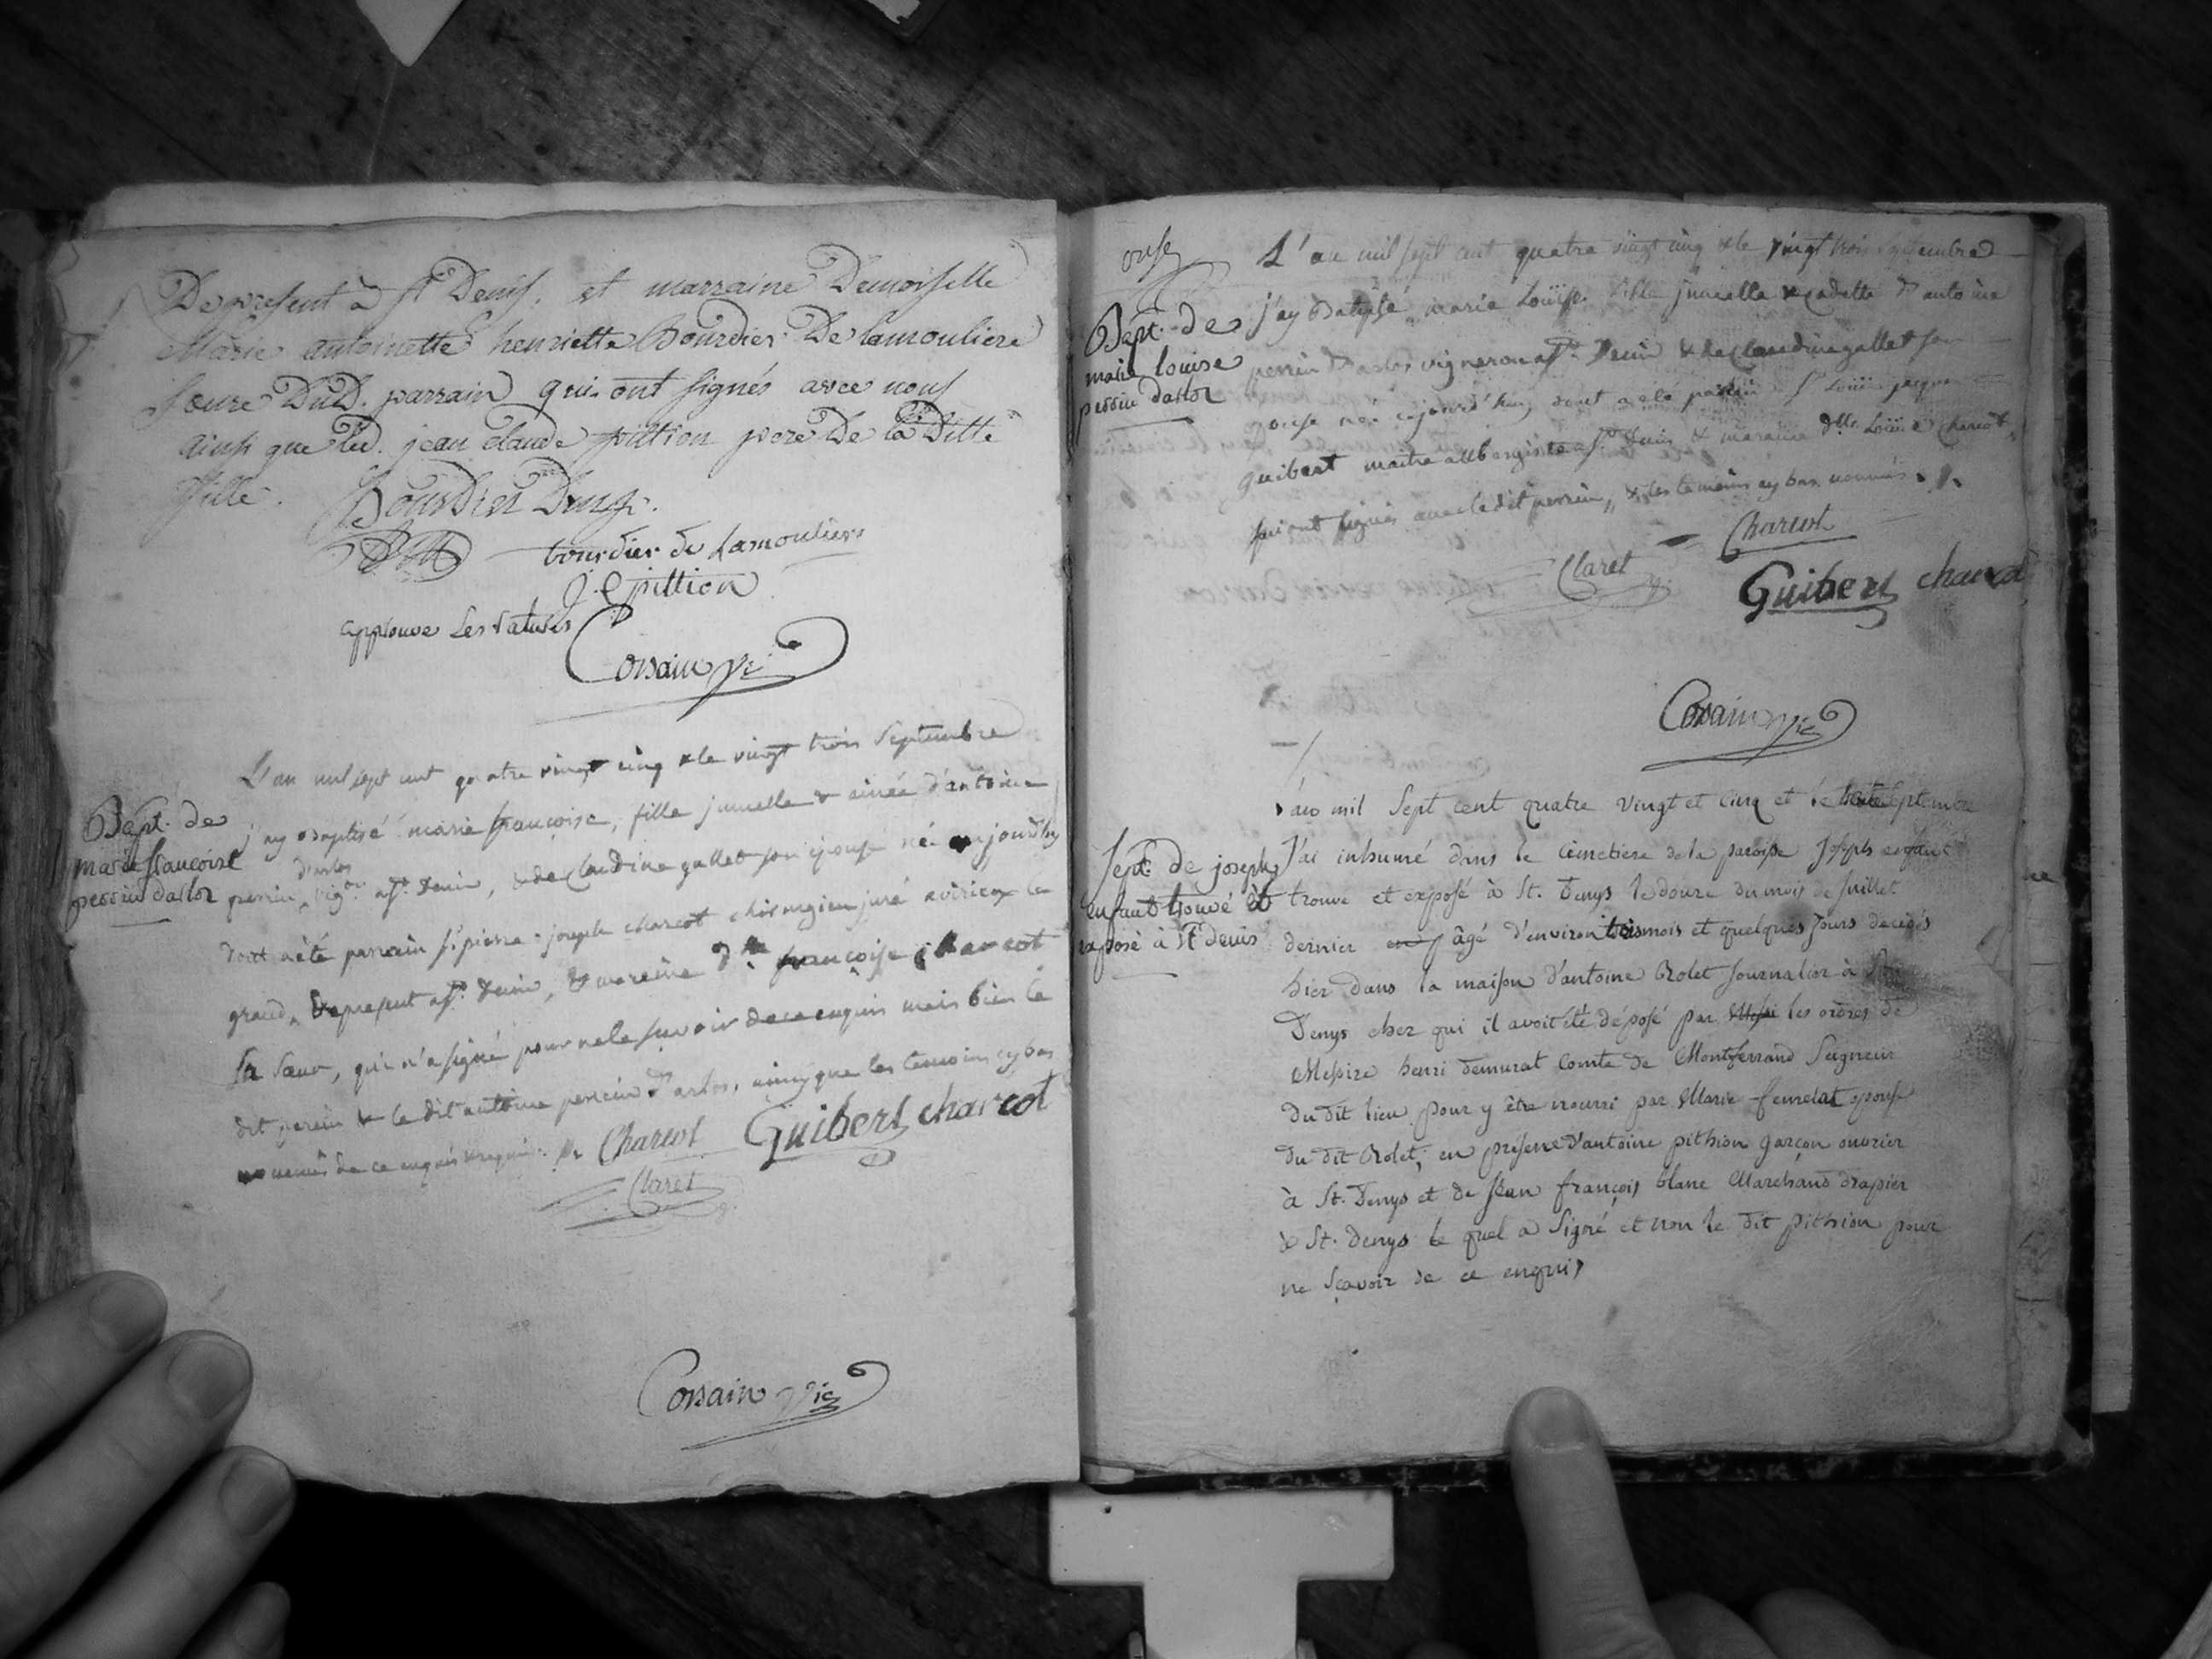 De present à St Denis, et marraine Demoiselle
Marie antoinette henriette Bourdier De lamouliere
soeure DuD. parrain qui ont signés avec nous
ainsi que led. jean claude pittion pere De la Ditte
fille.
Bourdier
bourdier de Lamouliere
J. C pittion
approuve les ratures
Corsain vic
L'an mil sept cent quatre vingt cinq & le vingt trois Septembre
Bapt. de
marie francoise
perrin darloz
j'ay baptisé marie françoise, fille jumelle & ainée d'antoine
perrin d'arlos vig.on à St. Denis, & de Claudine gallet son epouse née aujourd'huy
dont a été parrain sr. pierre joseph charcot chirurgien juré a virieux le
grand, & present à St. Denis, & maraine dlle françoise charcot
sa sœur, qui n'a signé pour ne le sçavoir de ce enquis mais bien le
dit parrin & le dit antoine perrein d'arlos, ainsy que les temoins cy bas
nommés de ce enquis & requis. Charcot Guibert charcot
Claret
Corsain Vic
L'an mil sept cent quatre vingt cinq & le vingt trois septembre
Bapt. de
marie louise
perrin darloz
j'ay Batisé marie Loüise fille jumelle & cadette d'antoine
perrin d'arlos vigneron à St. Denis & de Claudine gallet son
epouse née cejourd'huy, dont a été parrin Sr Loüis jacque
guibert maitre aubergiste à St. Denis & maraine dlle. Loüise Charcot
qui ont signés avec le dit perrin, & les temoins cy bas nommés.
Charcot
Claret
Guibert charcot
Corsain Vic
L'an mil Sept cent quatre vingt et cinq et le trente Septembre
Sept. de joseph
enfant trouvé et
exposé à St denis
J'ai inhumé dans le cimetiere de la paroisse Joseph enfant
trouve et exposé à St. Denys le douze du mois de Juillet
dernier âgé d'environ trois mois et quelques Jours decedés
hier dans la maison d'antoine Rolet Journalier à St
Denys chez qui il avoit été déposé par les ordres de
Messire henri demurat Comte de Montferrand Seigneur
du dit lieu pour y être nourri par Marie femelat epouse
du dit Rolet, en présence d'antoine pithion garçon ouvrier
à St. Denys et de Jean françois blanc Marchand drapier
à St. Denys le quel a Signé et non le dit pithion pour
ne Sçavoir de ce enquis